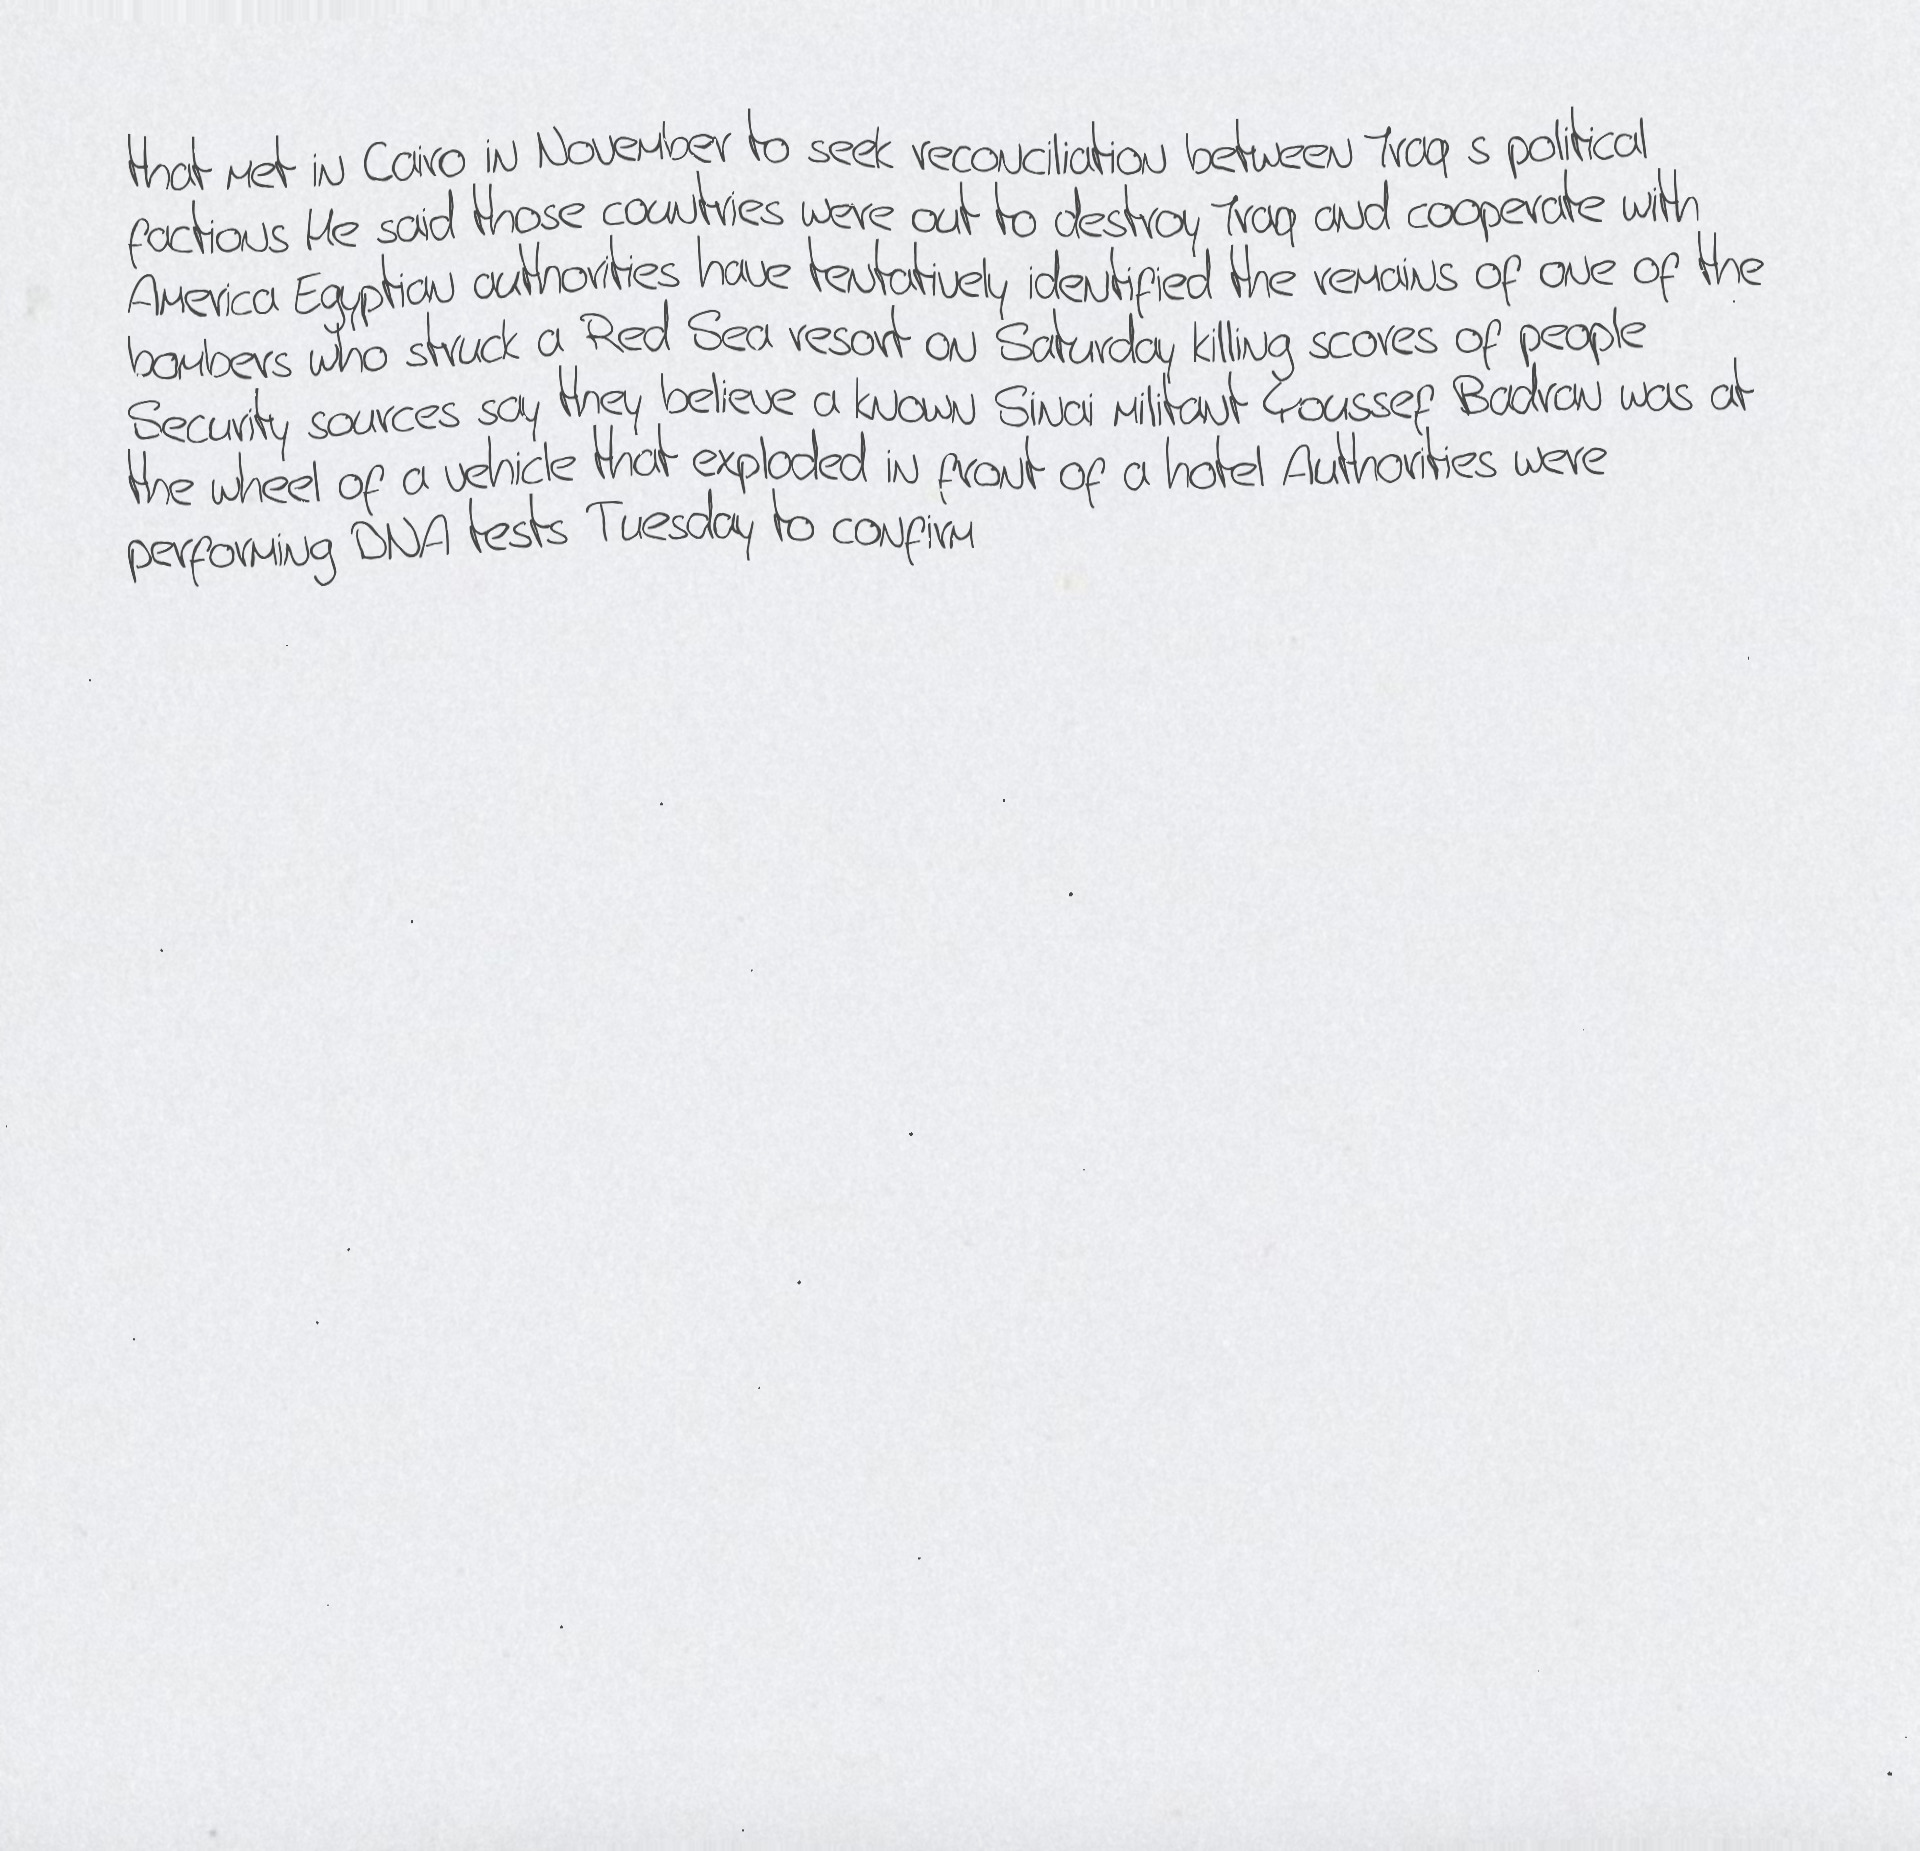 that met in Cairo in November to seek reconciliation between Iraq s political
factions He said those countries were out to destroy Iraq and cooperate with
America Egyptian authorities have tentatively identified the remains of one of the
bombers who struck a Red Sea resort on Saturday killing scores of people
Security sources say they believe a known Sinai militant Youssef Badran was at
the wheel of a vehicle that exploded in front of a hotel Authorities were
performing DNA tests Tuesday to confirm